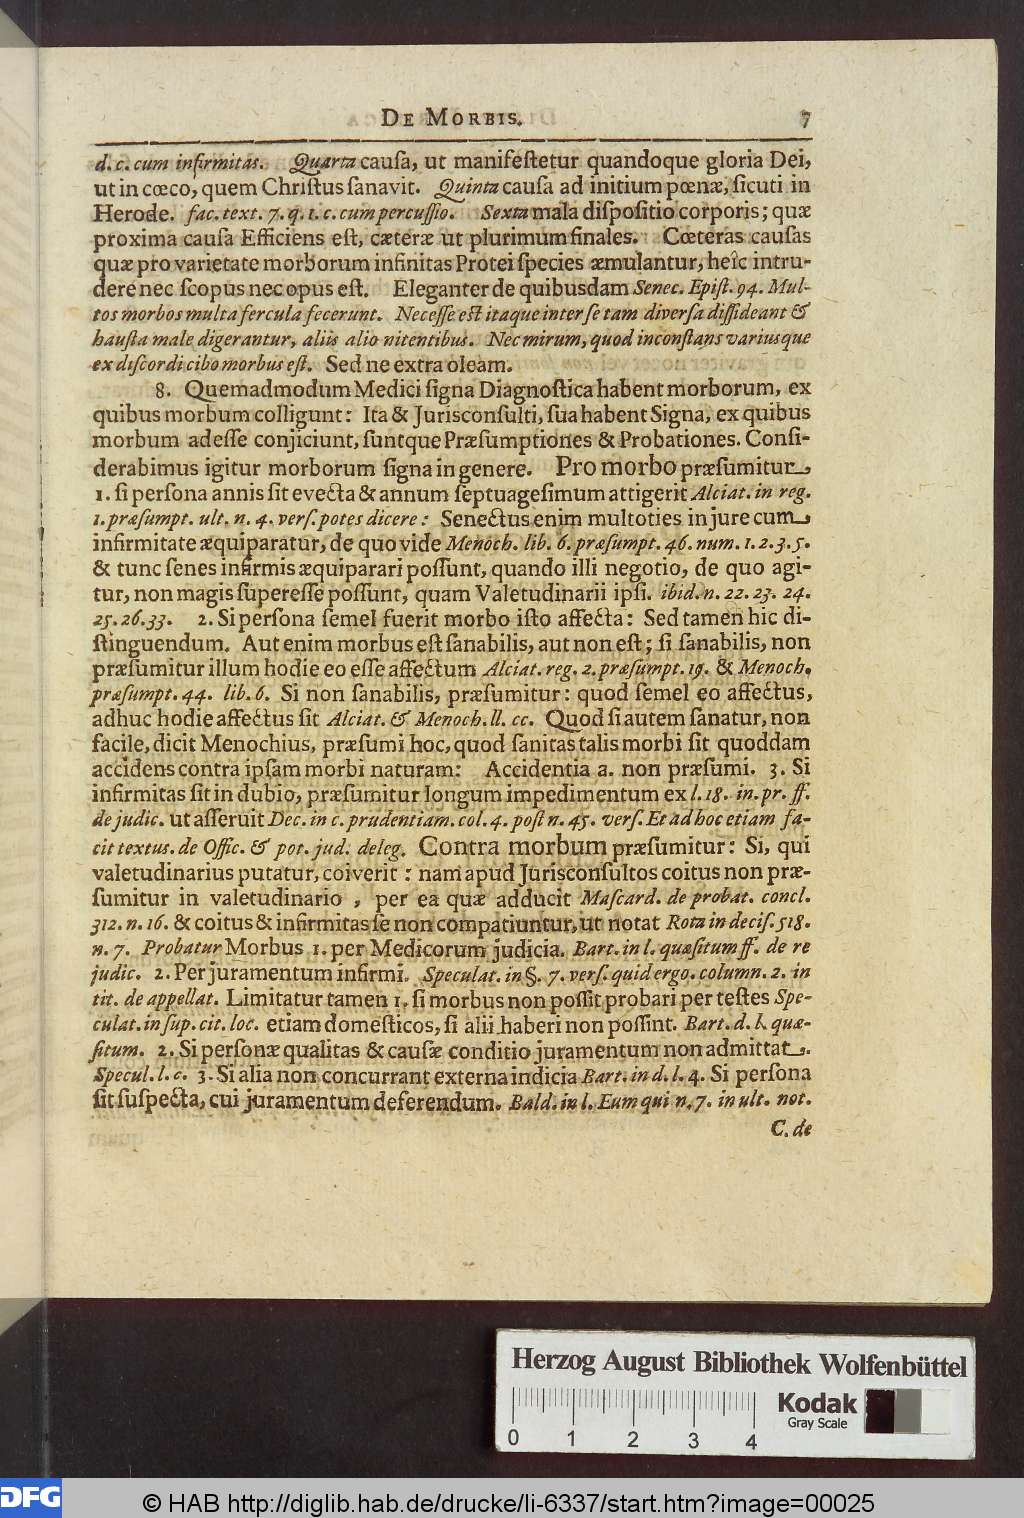 DE MORBIS. 7
d. c. cum infirmitas. Quarta cauſa, ut manifeſtetur quandoque gloria Dei,
ut in cœco, quem Chriſtus ſanavit. Quinta cauſa ad initium pœnæ, ſicuti in
Herode. fac. text. 7. q. 1. c. cum percuſſio. Sexta mala diſpoſitio corporis; quæ
proxima cauſa Efficiens eſt, cæteræ ut plurimum finales. Cœteras cauſas
quæ pro varietate morborum infinitas Protei ſpecies æmulantur, heîc intru-
dere nec ſcopus nec opus eſt. Eleganter de quibusdam Senec. Epiſt. 94. Mul-
tos morbos multa fercula fecerunt. Neceſſe eſt itaque inter ſe tam diverſa diſſideant &
hauſta male digerantur, aliis alio nitentibus. Nec mirum, quod inconſtans variusque
ex diſcordi cibo morbus eſt. Sed ne extra oleam.
8. Quemadmodum Medici ſigna Diagnoſtica habent morborum, ex
quibus morbum colligunt: Ita & Jurisconſulti, ſua habent Signa, ex quibus
morbum adeſſe conjiciunt, ſuntque Præſumptiones & Probationes. Conſi-
derabimus igitur morborum ſigna in genere. Pro morbo præſumitur,
1. ſi perſona annis ſit evecta & annum ſeptuageſimum attigerit Alciat. in reg.
1. præſumpt. ult. n. 4. verſ. potes dicere: Senectus enim multoties in jure cum,
infirmitate æquiparatur, de quo vide Menoch. lib. 6. præſumpt. 46. num. 1. 2. 3. 5.
& tunc ſenes infirmis æquiparari poſſunt, quando illi negotio, de quo agi-
tur, non magis ſupereſſe poſſunt, quam Valetudinarii ipſi. ibid. n. 22. 23. 24.
25. 26. 33. 2. Si perſona ſemel fuerit morbo iſto affecta: Sed tamen hic di-
ſtinguendum. Aut enim morbus eſt ſanabilis, aut non eſt; ſi ſanabilis, non
præſumitur illum hodie eo eſſe affectum Alciat. reg. 2. præſumpt. 19. & Menoch.
præſumpt. 44. lib. 6. Si non ſanabilis, præſumitur: quod ſemel eo affectus,
adhuc hodie affectus ſit Alciat. & Menoch. ll. cc. Quod ſi autem ſanatur, non
facile, dicit Menochius, præſumi hoc, quod ſanitas talis morbi ſit quoddam
accidens contra ipſam morbi naturam: Accidentia a. non præſumi. 3. Si
infirmitas ſit in dubio, præſumitur longum impedimentum ex l. 18. in. pr. ff.
de judic. ut aſſeruit Dec. in c. prudentiam. col. 4. poſt n. 45. verſ. Et ad hoc etiam fa-
cit textus. de Offic. & pot. jud. deleg. Contra morbum præſumitur: Si, qui
valetudinarius putatur, coiverit: nam apud Jurisconſultos coitus non præ-
ſumitur in valetudinario, per ea quæ adducit Maſcard. de probat. concl.
312. n. 16. & coitus & infirmitas ſe non compatiuntur, ut notat Rota in deciſ. 518.
n. 7. Probatur Morbus 1. per Medicorum judicia. Bart. in l. quæſitum ff. de re
judic. 2. Per juramentum infirmi. Speculat. in §. 7. verſ. quid ergo. column. 2. in
tit. de appellat. Limitatur tamen 1. ſi morbus non poſſit probari per teſtes Spe-
culat. in ſup. cit. loc. etiam domeſticos, ſi alii haberi non poſſint. Bart. d. l. quæ-
ſitum. 2. Si perſonæ qualitas & cauſæ conditio juramentum non admittat.
Specul. l. c. 3. Si alia non concurrant externa indicia Bart. in d. l. 4. Si perſona
ſit ſuſpecta, cui juramentum deferendum. Bald. in l. Eum qui n. 7. in ult. not.
C. de
Herzog August Bibliothek Wolfenbüttel
Kodak
Gray Scale
0 1 2 3 4
DFG
© HAB http://diglib.hab.de/drucke/li-6337/start.htm?image=00025